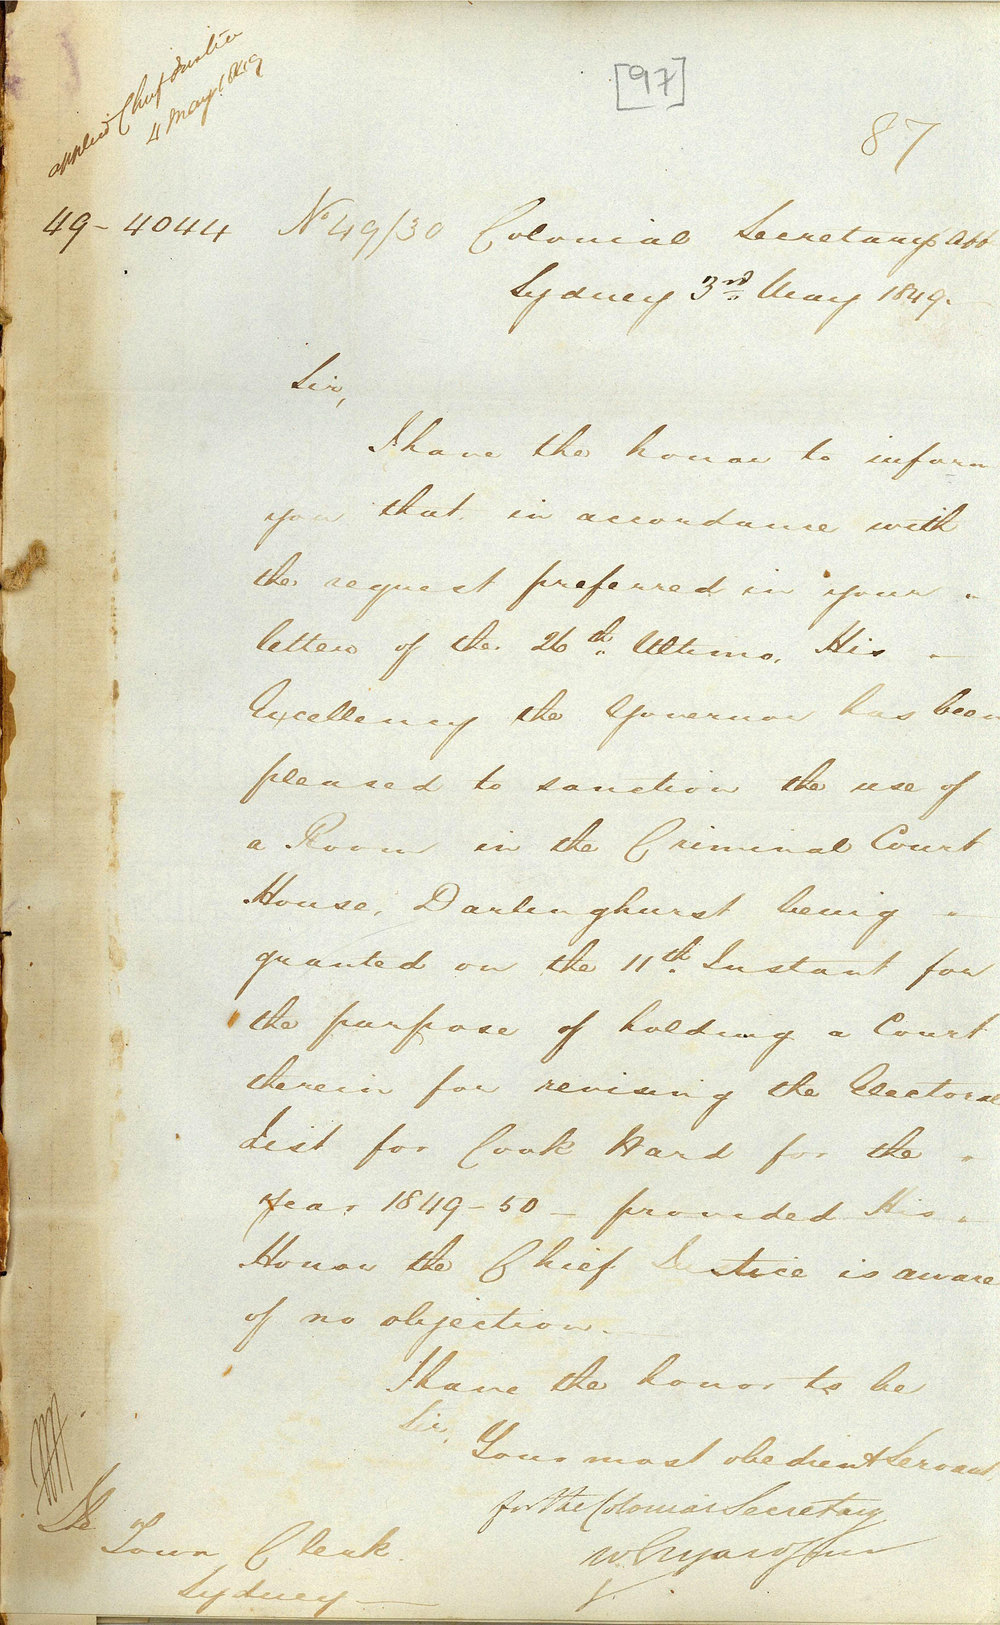 applied Chief Justice
4 May 1849
[97]
87
49-4044 No 49/30 Colonial Secretary's Off
Sydney 3rd May 1849.
Sir,
I have the honor to inform
you that in accordance with
the request preferred in your
letter of the 26th Ultimo, His
Excellency the Governor has been
pleased to sanction the use of
a Room in the Criminal Court
House, Darlinghurst being
granted on the 11th Instant for
the purpose of holding a Court
therein for revising the Electoral
List for Cook Ward for the
year 1849-50 - provided His
Honor the Chief Justice is aware
of no objection.
I have the honor to be
Sir,
Your most obedient Servant,
for the Colonial Secretary
The
Town Clerk
Sydney